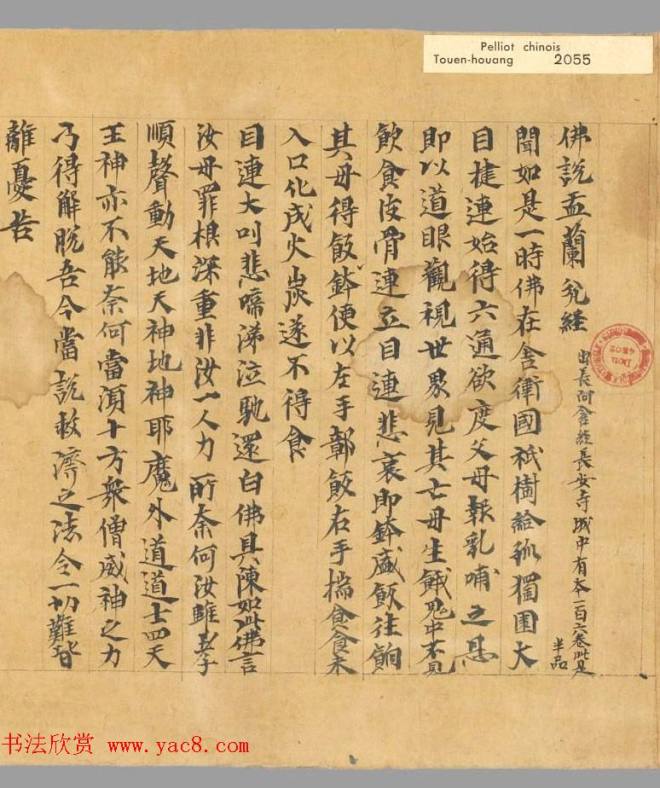 Pelliot chinois
Touen-houang 2055
佛說盂蘭瓫經
出長阿含經長安寺城中有本一百六卷此是
半品
聞如是一時佛在舍衛國祇樹給孤獨園大
目揵連始得六通欲度父母報乳哺之恩
即以道眼觀視世界見其亡母生餓鬼中不見
飲食皮骨連立目連悲哀即鉢盛飯往餉
其母得飯鉢便以左手鄣飯右手揣食食未
入口化成火炭遂不得食
目連大叫悲啼涕泣馳還白佛具陳如此佛言
汝母罪根深重非汝一人力所奈何汝雖孝
順聲動天地天神地神耶魔外道道士四天
王神亦不能奈何當須十方衆僧威神之力
乃得解脫吾今當說救濟之法令一切難皆
離憂苦
书法欣赏 www.yac8.com